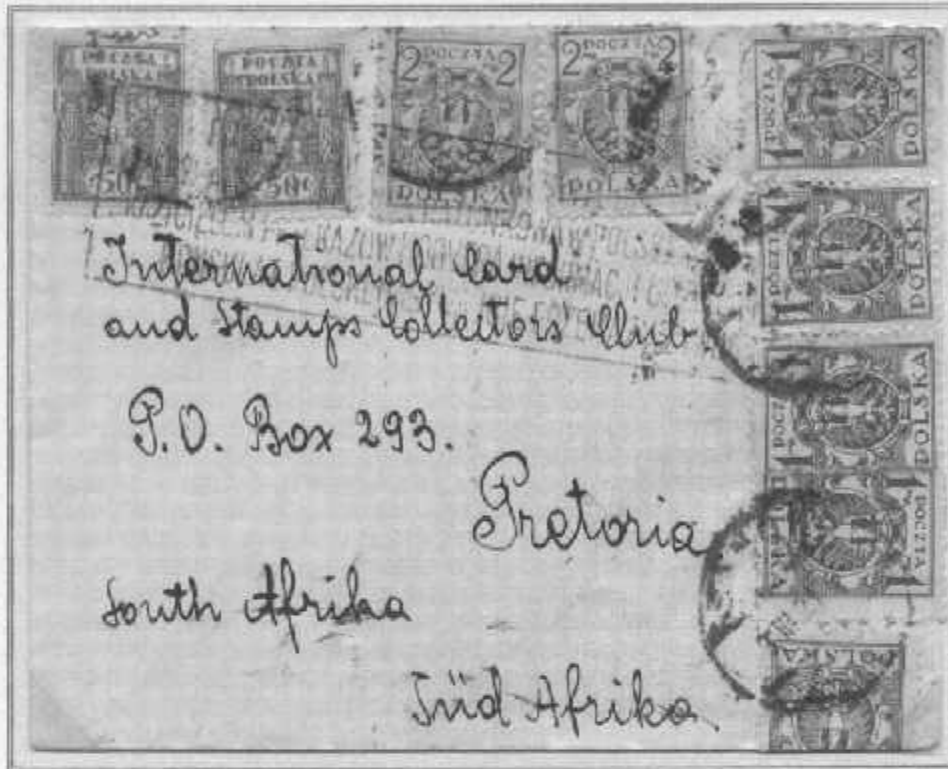 POCZTA POLSKA 50
POCZTA POLSKA 50
2 POCZTA 2 POLSKA
2 POCZTA 2 POLSKA
1 POCZTA 1 POLSKA
1 POCZTA 1 POLSKA
1 POCZTA 1 POLSKA
1 POCZTA 1 POLSKA
POLSKA
International Card
and Stamps Collectors Club
P.O. Box 293.
Pretoria
South Afrika
Süd Afrika